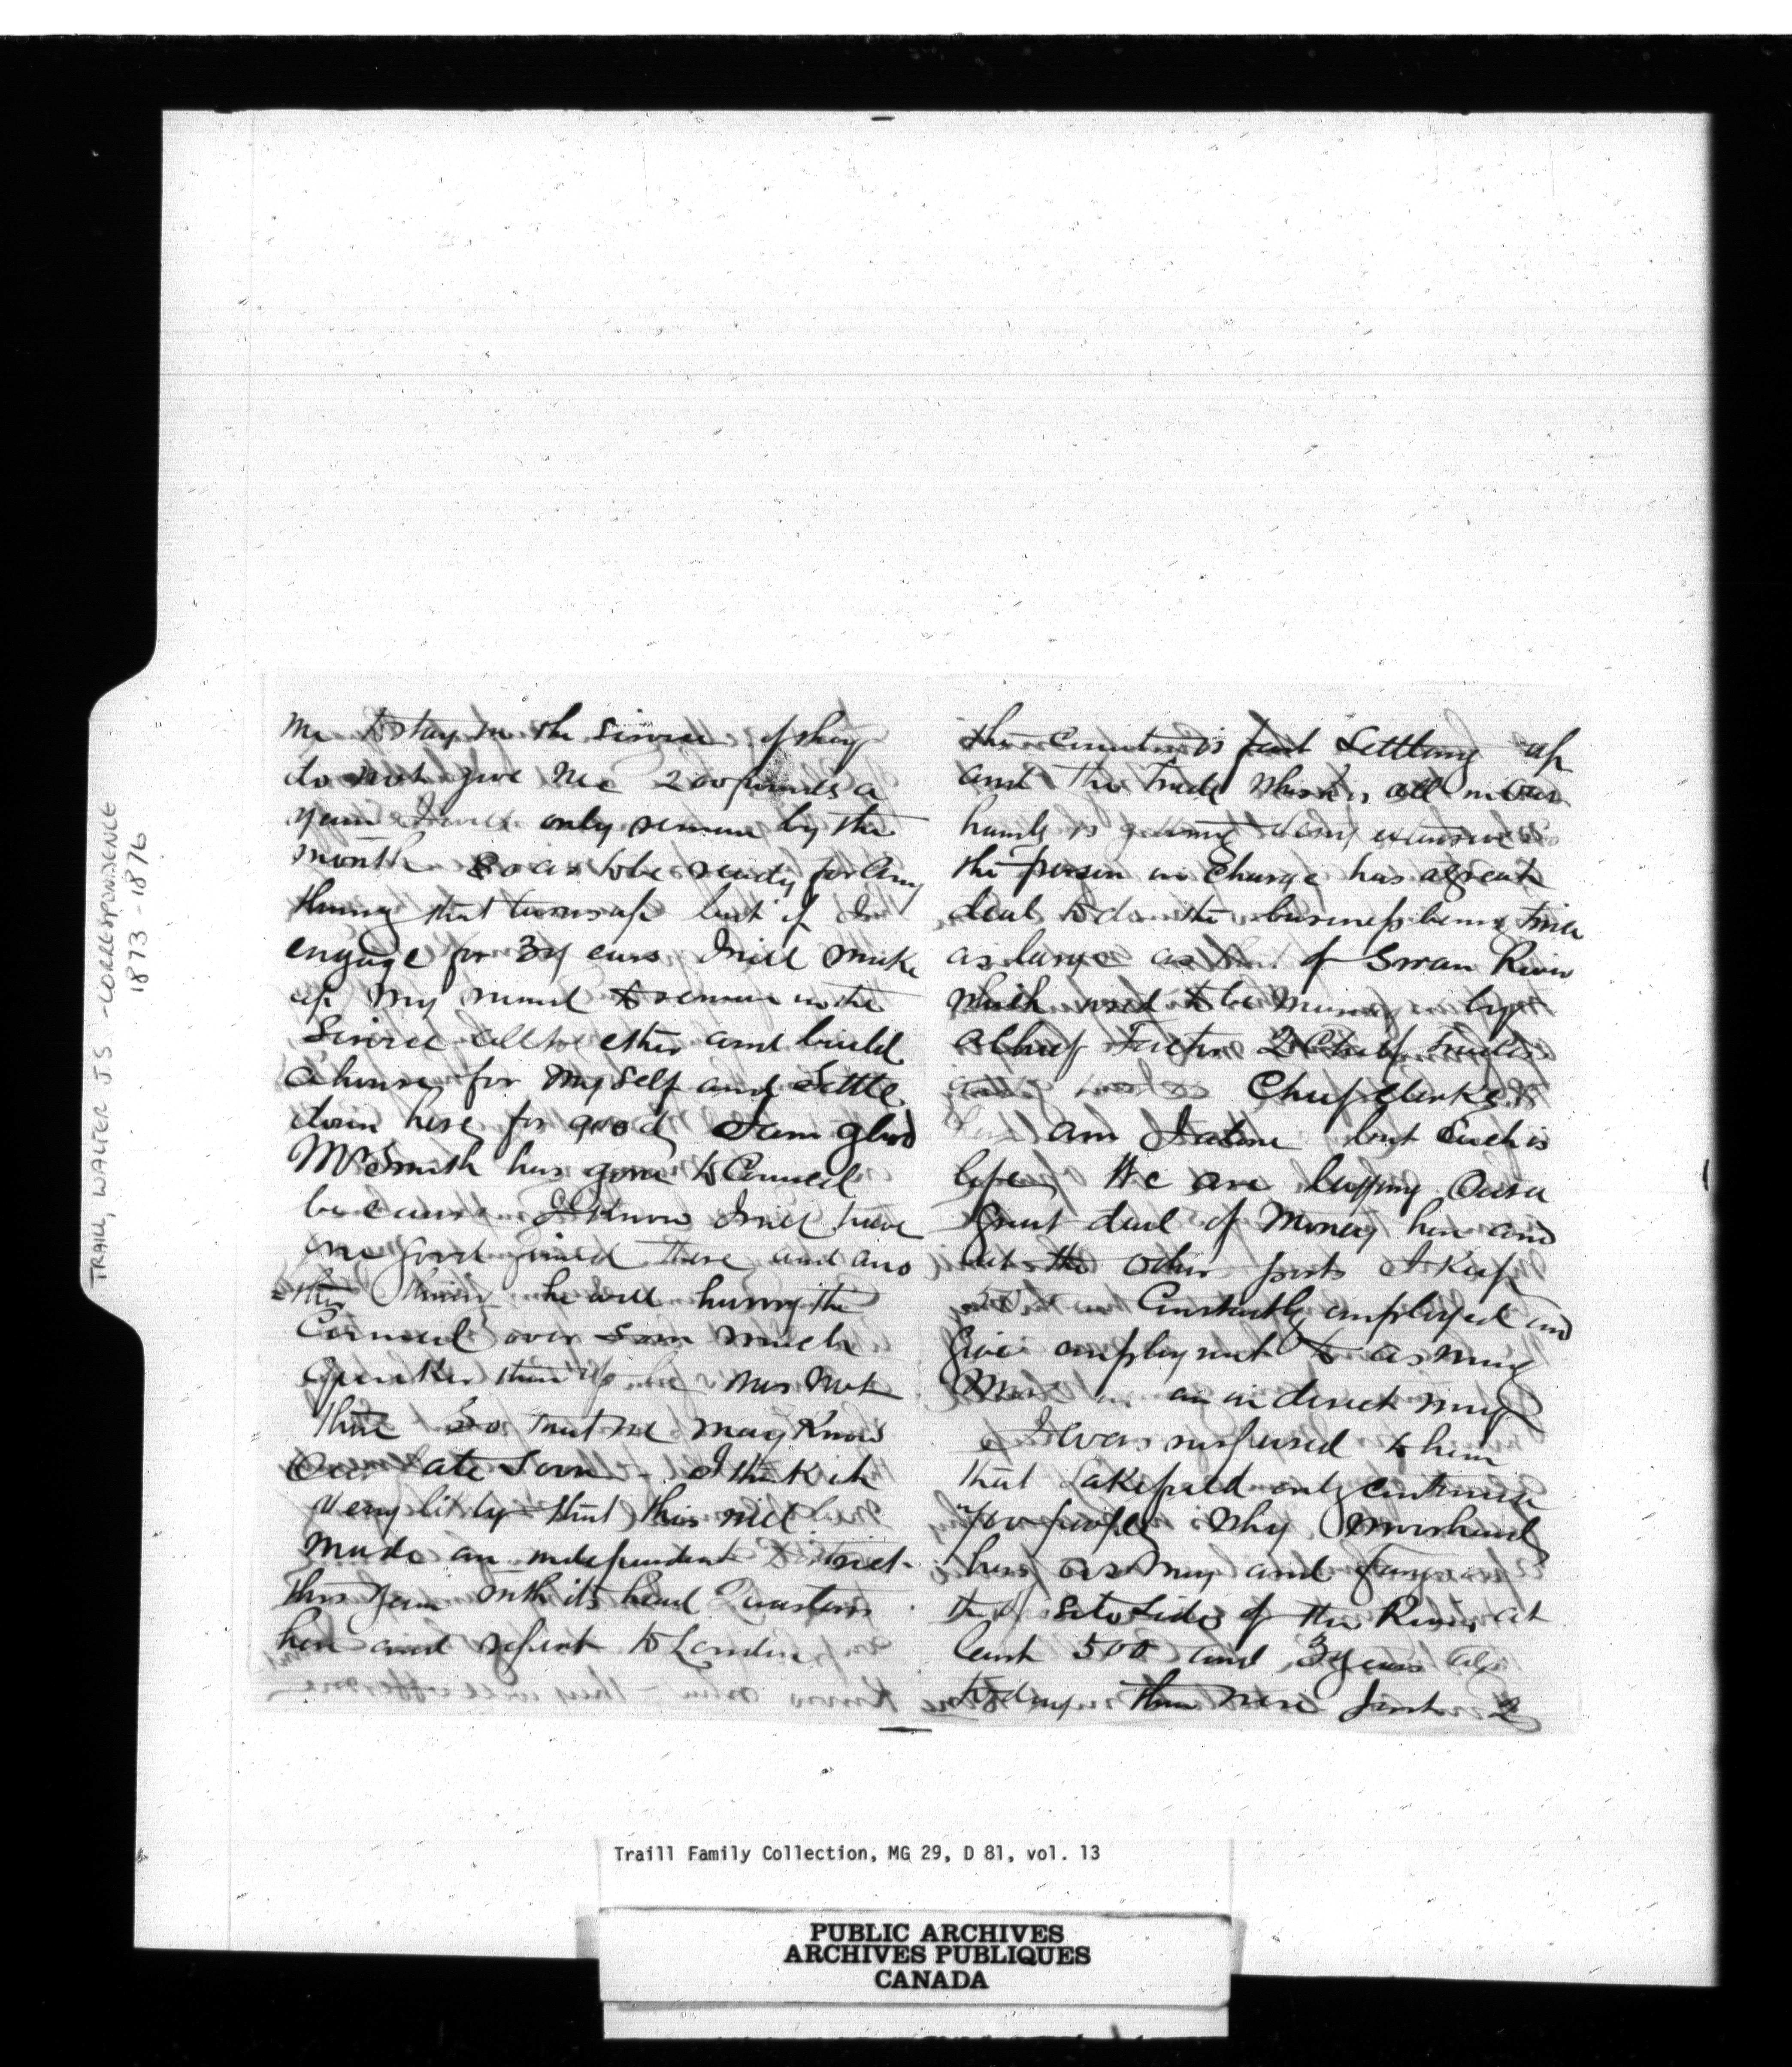 TRAILL, WALTER J.S. - CORRESPONDENCE
1873-1876
me to stay in the Service if they
do not give me 200 pounds a
year I will only remain by the
month So as to be ready for any
thing that turns up but if I
engage for 3 years I will make
up my mind to remain in the
Service all to ether and build
a house for my self and Settle
down here for good I am glad
Mr Smith has gone to Council
because I know I will have
one good friend there and ano
=ther thing he will hurry the
Council over much
quicker than if he was not
there So that we may Know
Our fate Soon - I think it
very likly that this will
made an independent District
this year with its head Quarters
here and report to London
the Country is fast Settling up
and the trade which is all in our
hands is getting very extensive
the person in Charge has a great
deal to do the business being twice
as large as that of Swan River
which used to be managed by
a Chief Factor 2 Chief Traders
Chief Clerks
am I alone but Such is
life We are laying Out a
great deal of Money here and
at the other posts I Keep
Constantly employed and
Give employment to as many
More in an indirect way
I was surprised to hear
that Lakefield only contained
people why Moorhead
has as many and Fargo on
the oposite Side of the River at
least 500 and 3 years ago
today there were Just 2
Traill Family Collection, MG 29, D 81, vol. 13
PUBLIC ARCHIVES
ARCHIVES PUBLIQUES
CANADA